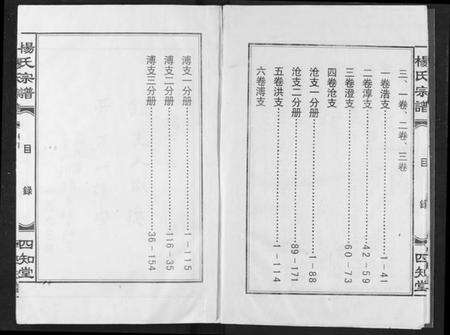 楊氏宗譜
目錄
四知堂
三、一卷、二卷、三卷
一卷浩支……1-41
二卷淳支……42-59
三卷澄支……60-73
四卷沧支
沧支一分册……1-88
沧支二分册……89-171
五卷洪支……1-114
六卷溥支
溥支一分册……1-115
溥支二分册……116-35
溥支三分册……36-154
楊氏宗譜
目錄
四知堂